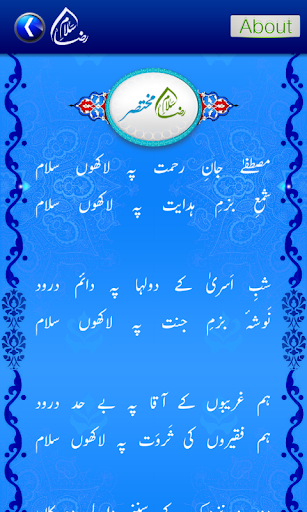 سلامِ رضا
About
مختصر سلامِ رضا
مصطفےٰ جانِ رحمت پہ لاکھوں سلام
شمعِ بزمِ ہدایت پہ لاکھوں سلام
شبِ اَسریٰ کے دولہا پہ دائم درود
نَوشۂ بزمِ جنت پہ لاکھوں سلام
ہم غریبوں کے آقا پہ بے حد درود
ہم فقیروں کی ثَروَت پہ لاکھوں سلام